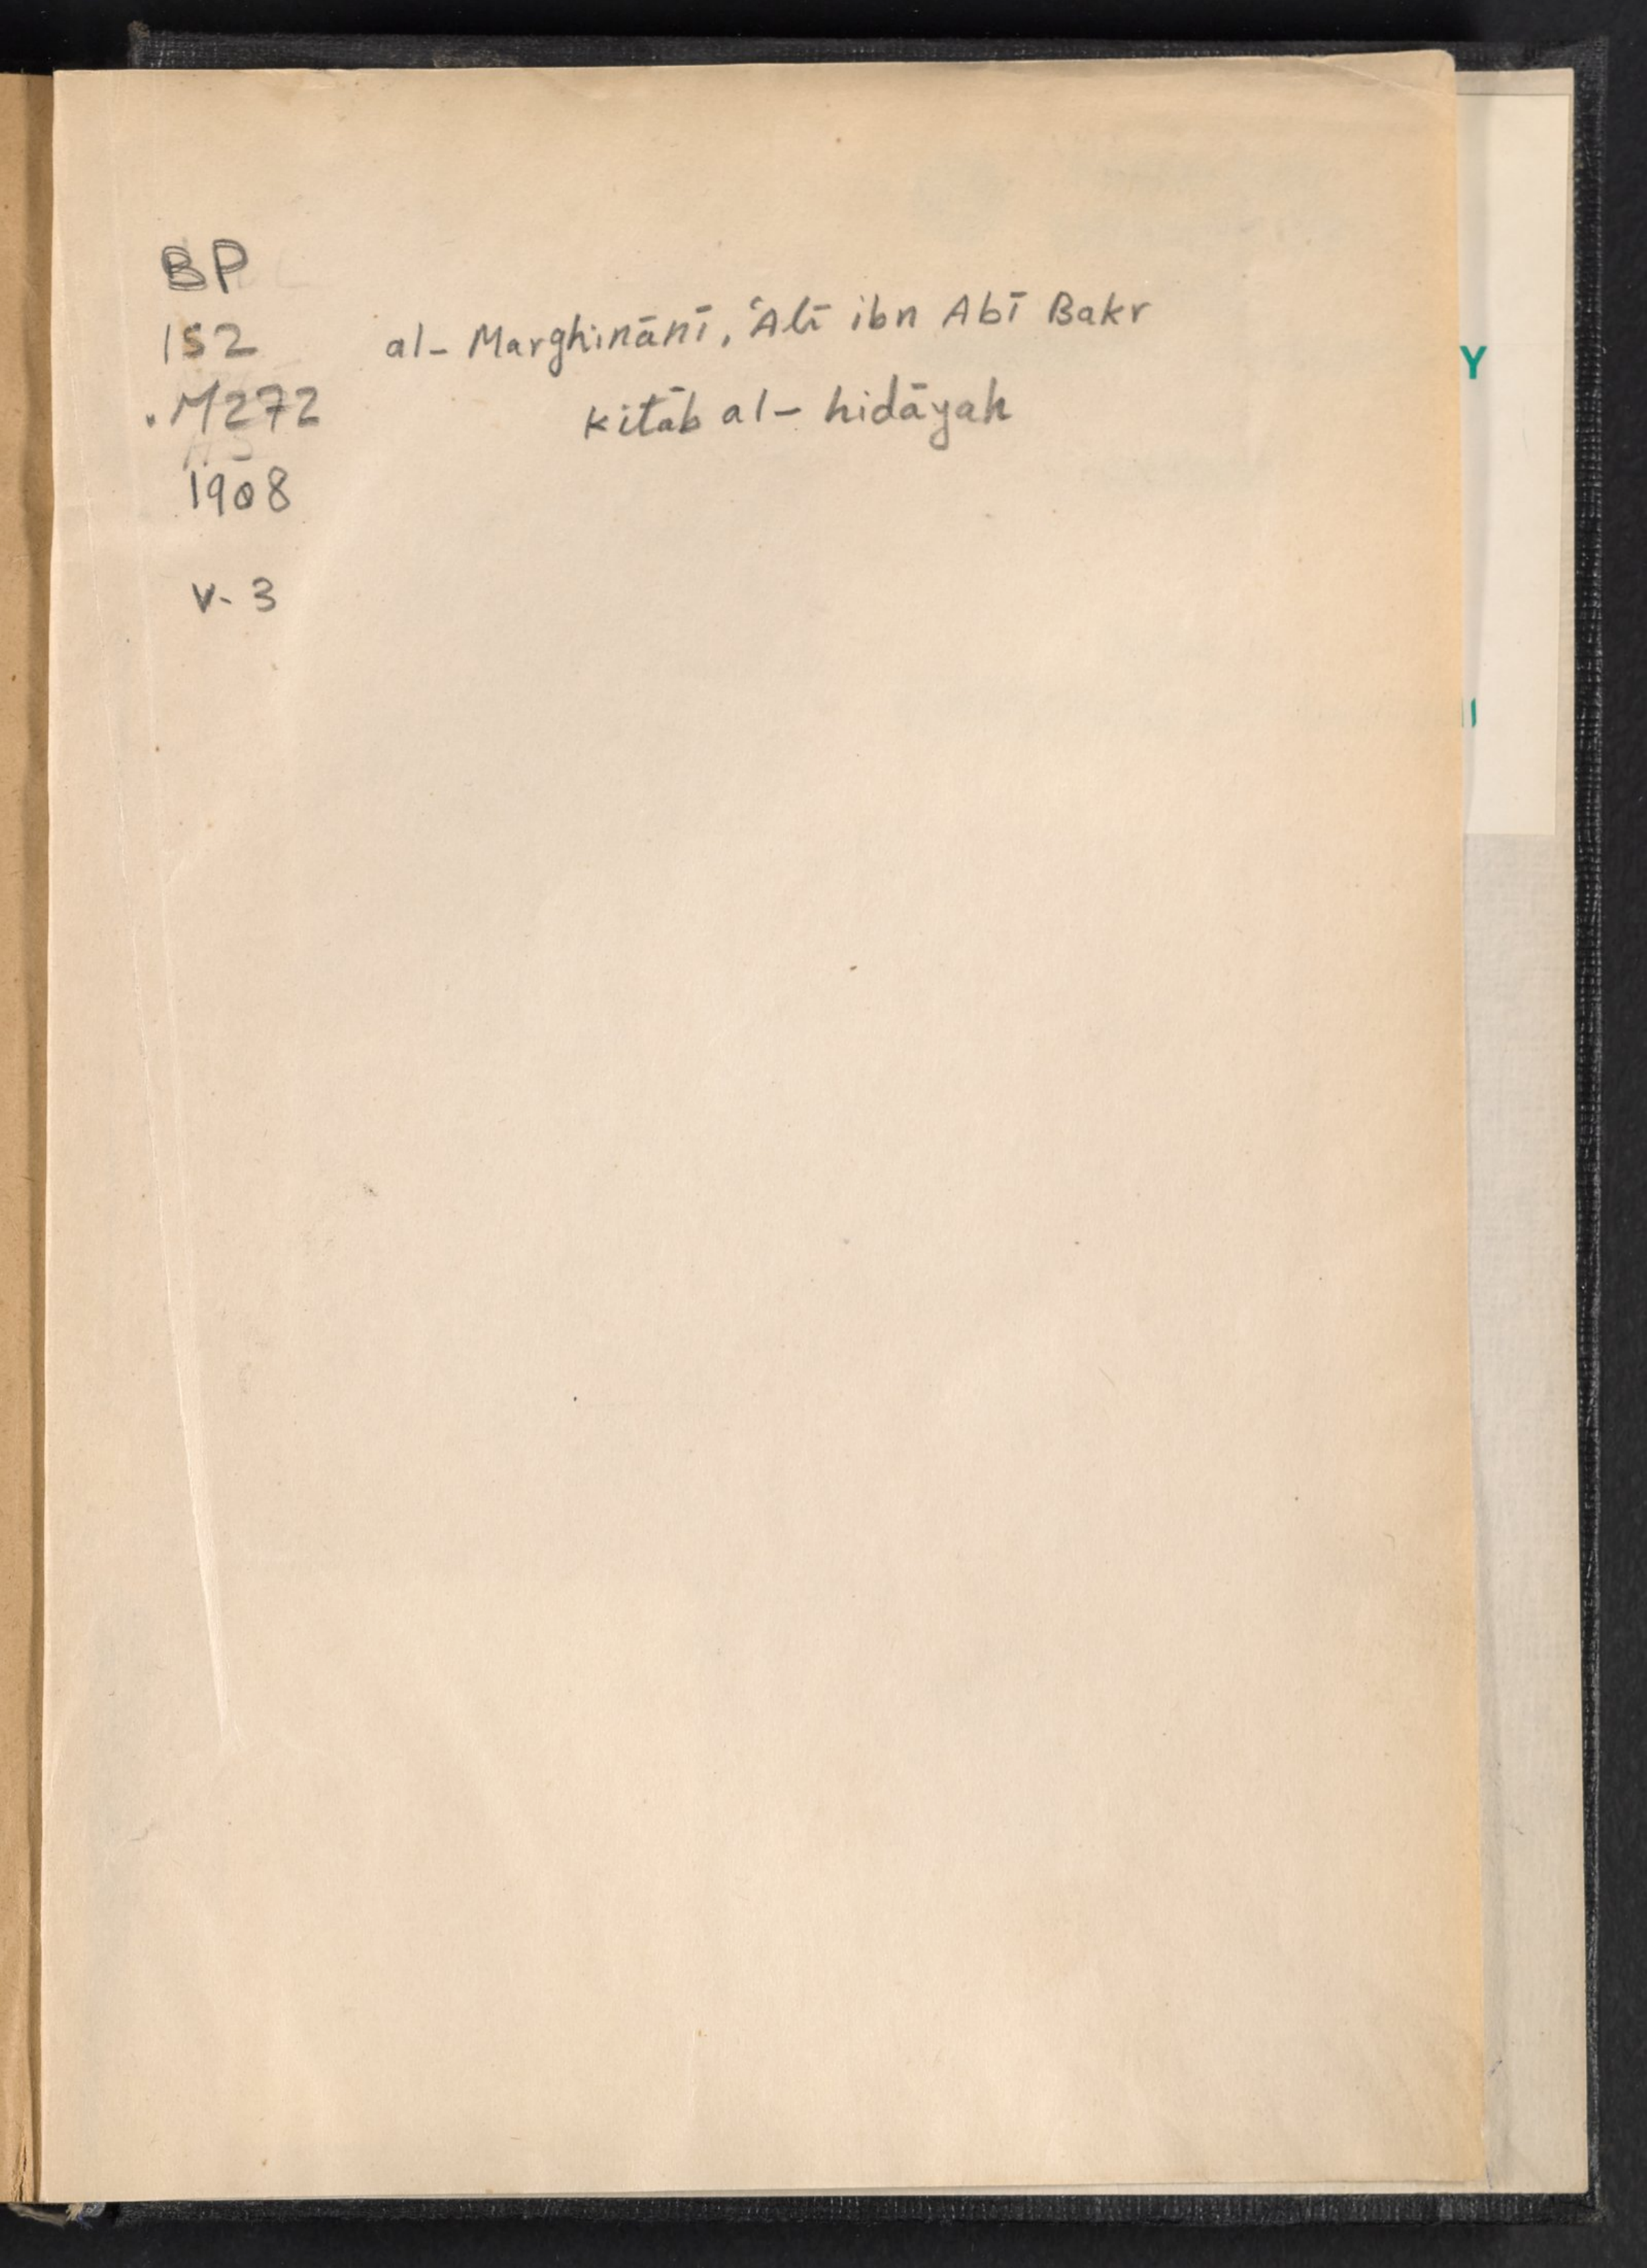 BP
152
.M272
1908
v. 3
al-Marghinānī, ʿAlī ibn Abī Bakr
Kitāb al-hidāyah
Y